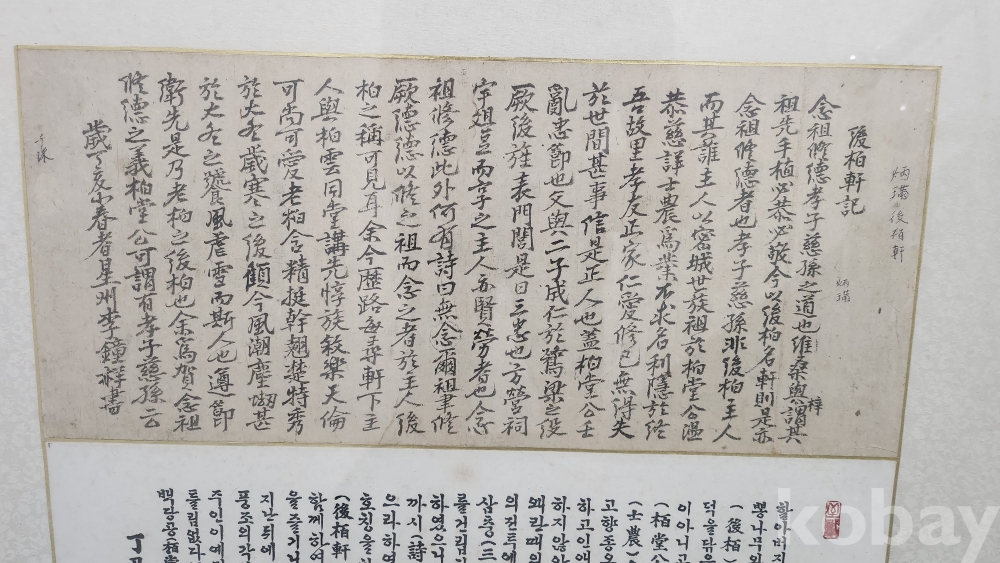 後栢軒
後栢軒記
念祖修德孝子慈孫之道也維桑與梓謂其
祖先手植必恭必敬今以後栢名軒則是亦
念祖修德者也孝子慈孫非後栢主人
而其誰主人以密城世蔟祖於栢堂公溫
恭慈詳士農爲業不求名利隱於終
吾故里孝友正家仁愛修己無得失
於世間甚事信是正人也盖栢堂公壬
亂忠節也父與二子成仁於鷺梁之役
厥後旌表門閭是曰三忠也方營祠
宇俎豆而享之主人亦賢勞者也念
祖修德此外何有詩曰無念爾祖聿修
厥德德以修之祖而念之者於主人後
栢之稱可見耳余今歷路每尋軒下主
人與栢雲同堂講先惇族敘樂天倫
可尚可愛老栢含精挺幹翹楚特秀
於大冬歲寒之後顧今風潮塵甚
於大冬之饕風虐雪而斯人也遵節
衛先是乃老栢之後栢也余爲賀念祖
修德之義栢堂公可謂有孝子慈孫云
歲丁亥小春者星州李鐘祥書
할아버지
뽕나무와
(後栢)
덕을닦으
이아니고
(栢堂公
(士農)
고향종오
하고인애
하지않았
왜란때의
의전투에
삼충(三
를건립
하였으니
까시(詩
으라하였
호칭을
(後栢軒
함께하여
을즐기니
지난뒤에
풍조의각
주인이예
를립없다
백당공(栢堂
丁
kobay